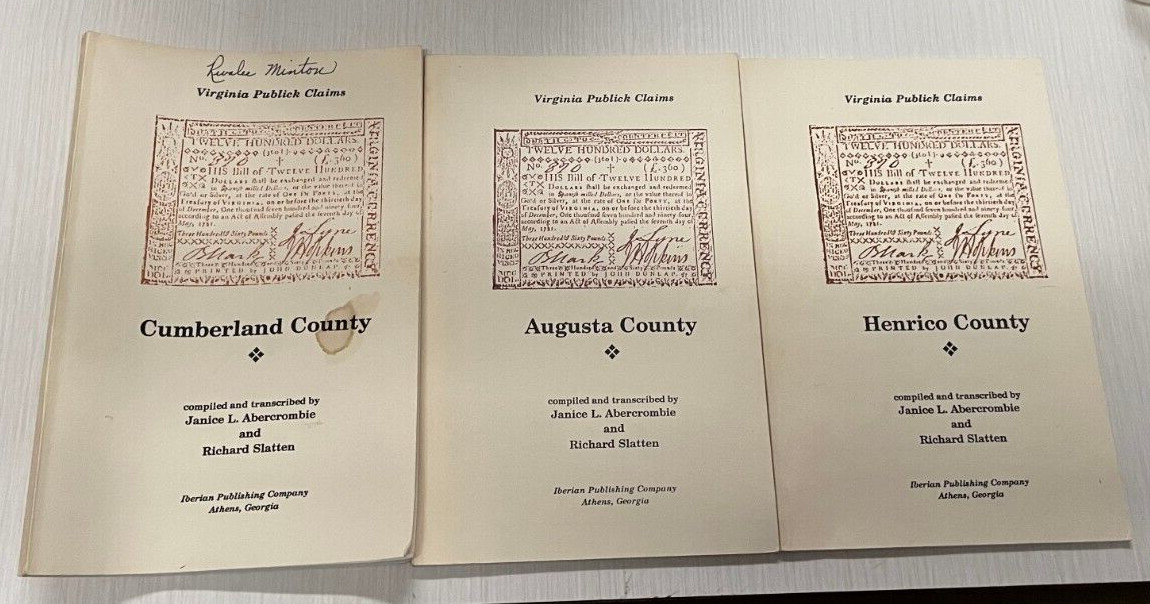 Minton
Virginia Publick Claims
TWELVE HUNDRED DOLLARS.
No. 890 (£.360)
THIS Bill of TWELVE HUNDRED
DOLLARS shall be exchanged and redeemed
in Spanish milled Dollars, or the value thereof in
Gold or Silver, at the rate of ONE for FORTY, at the
Treasury of VIRGINIA, on or before the thirtieth day
of December, One thousand seven hundred and ninety four,
according to an Act of Assembly passed the seventh day of
May, 1781.
Three Hundred & Sixty Pounds
J Hopkins
PRINTED by JOHN DUNLAP.
VIRGINIA CURRENCY
Cumberland County
compiled and transcribed by
Janice L. Abercrombie
and
Richard Slatten
Iberian Publishing Company
Athens, Georgia
Virginia Publick Claims
TWELVE HUNDRED DOLLARS.
No. 890 (£.360)
THIS Bill of TWELVE HUNDRED
DOLLARS shall be exchanged and redeemed
in Spanish milled Dollars, or the value thereof in
Gold or Silver, at the rate of ONE for FORTY, at the
Treasury of VIRGINIA, on or before the thirtieth day
of December, One thousand seven hundred and ninety four,
according to an Act of Assembly passed the seventh day of
May, 1781.
Three Hundred & Sixty Pounds
J Hopkins
PRINTED by JOHN DUNLAP.
VIRGINIA CURRENCY
Augusta County
compiled and transcribed by
Janice L. Abercrombie
and
Richard Slatten
Iberian Publishing Company
Athens, Georgia
Virginia Publick Claims
TWELVE HUNDRED DOLLARS.
No. 890 (£.360)
THIS Bill of TWELVE HUNDRED
DOLLARS shall be exchanged and redeemed
in Spanish milled Dollars, or the value thereof in
Gold or Silver, at the rate of ONE for FORTY, at the
Treasury of VIRGINIA, on or before the thirtieth day
of December, One thousand seven hundred and ninety four,
according to an Act of Assembly passed the seventh day of
May, 1781.
Three Hundred & Sixty Pounds
J Hopkins
PRINTED by JOHN DUNLAP.
VIRGINIA CURRENCY
Henrico County
compiled and transcribed by
Janice L. Abercrombie
and
Richard Slatten
Iberian Publishing Company
Athens, Georgia